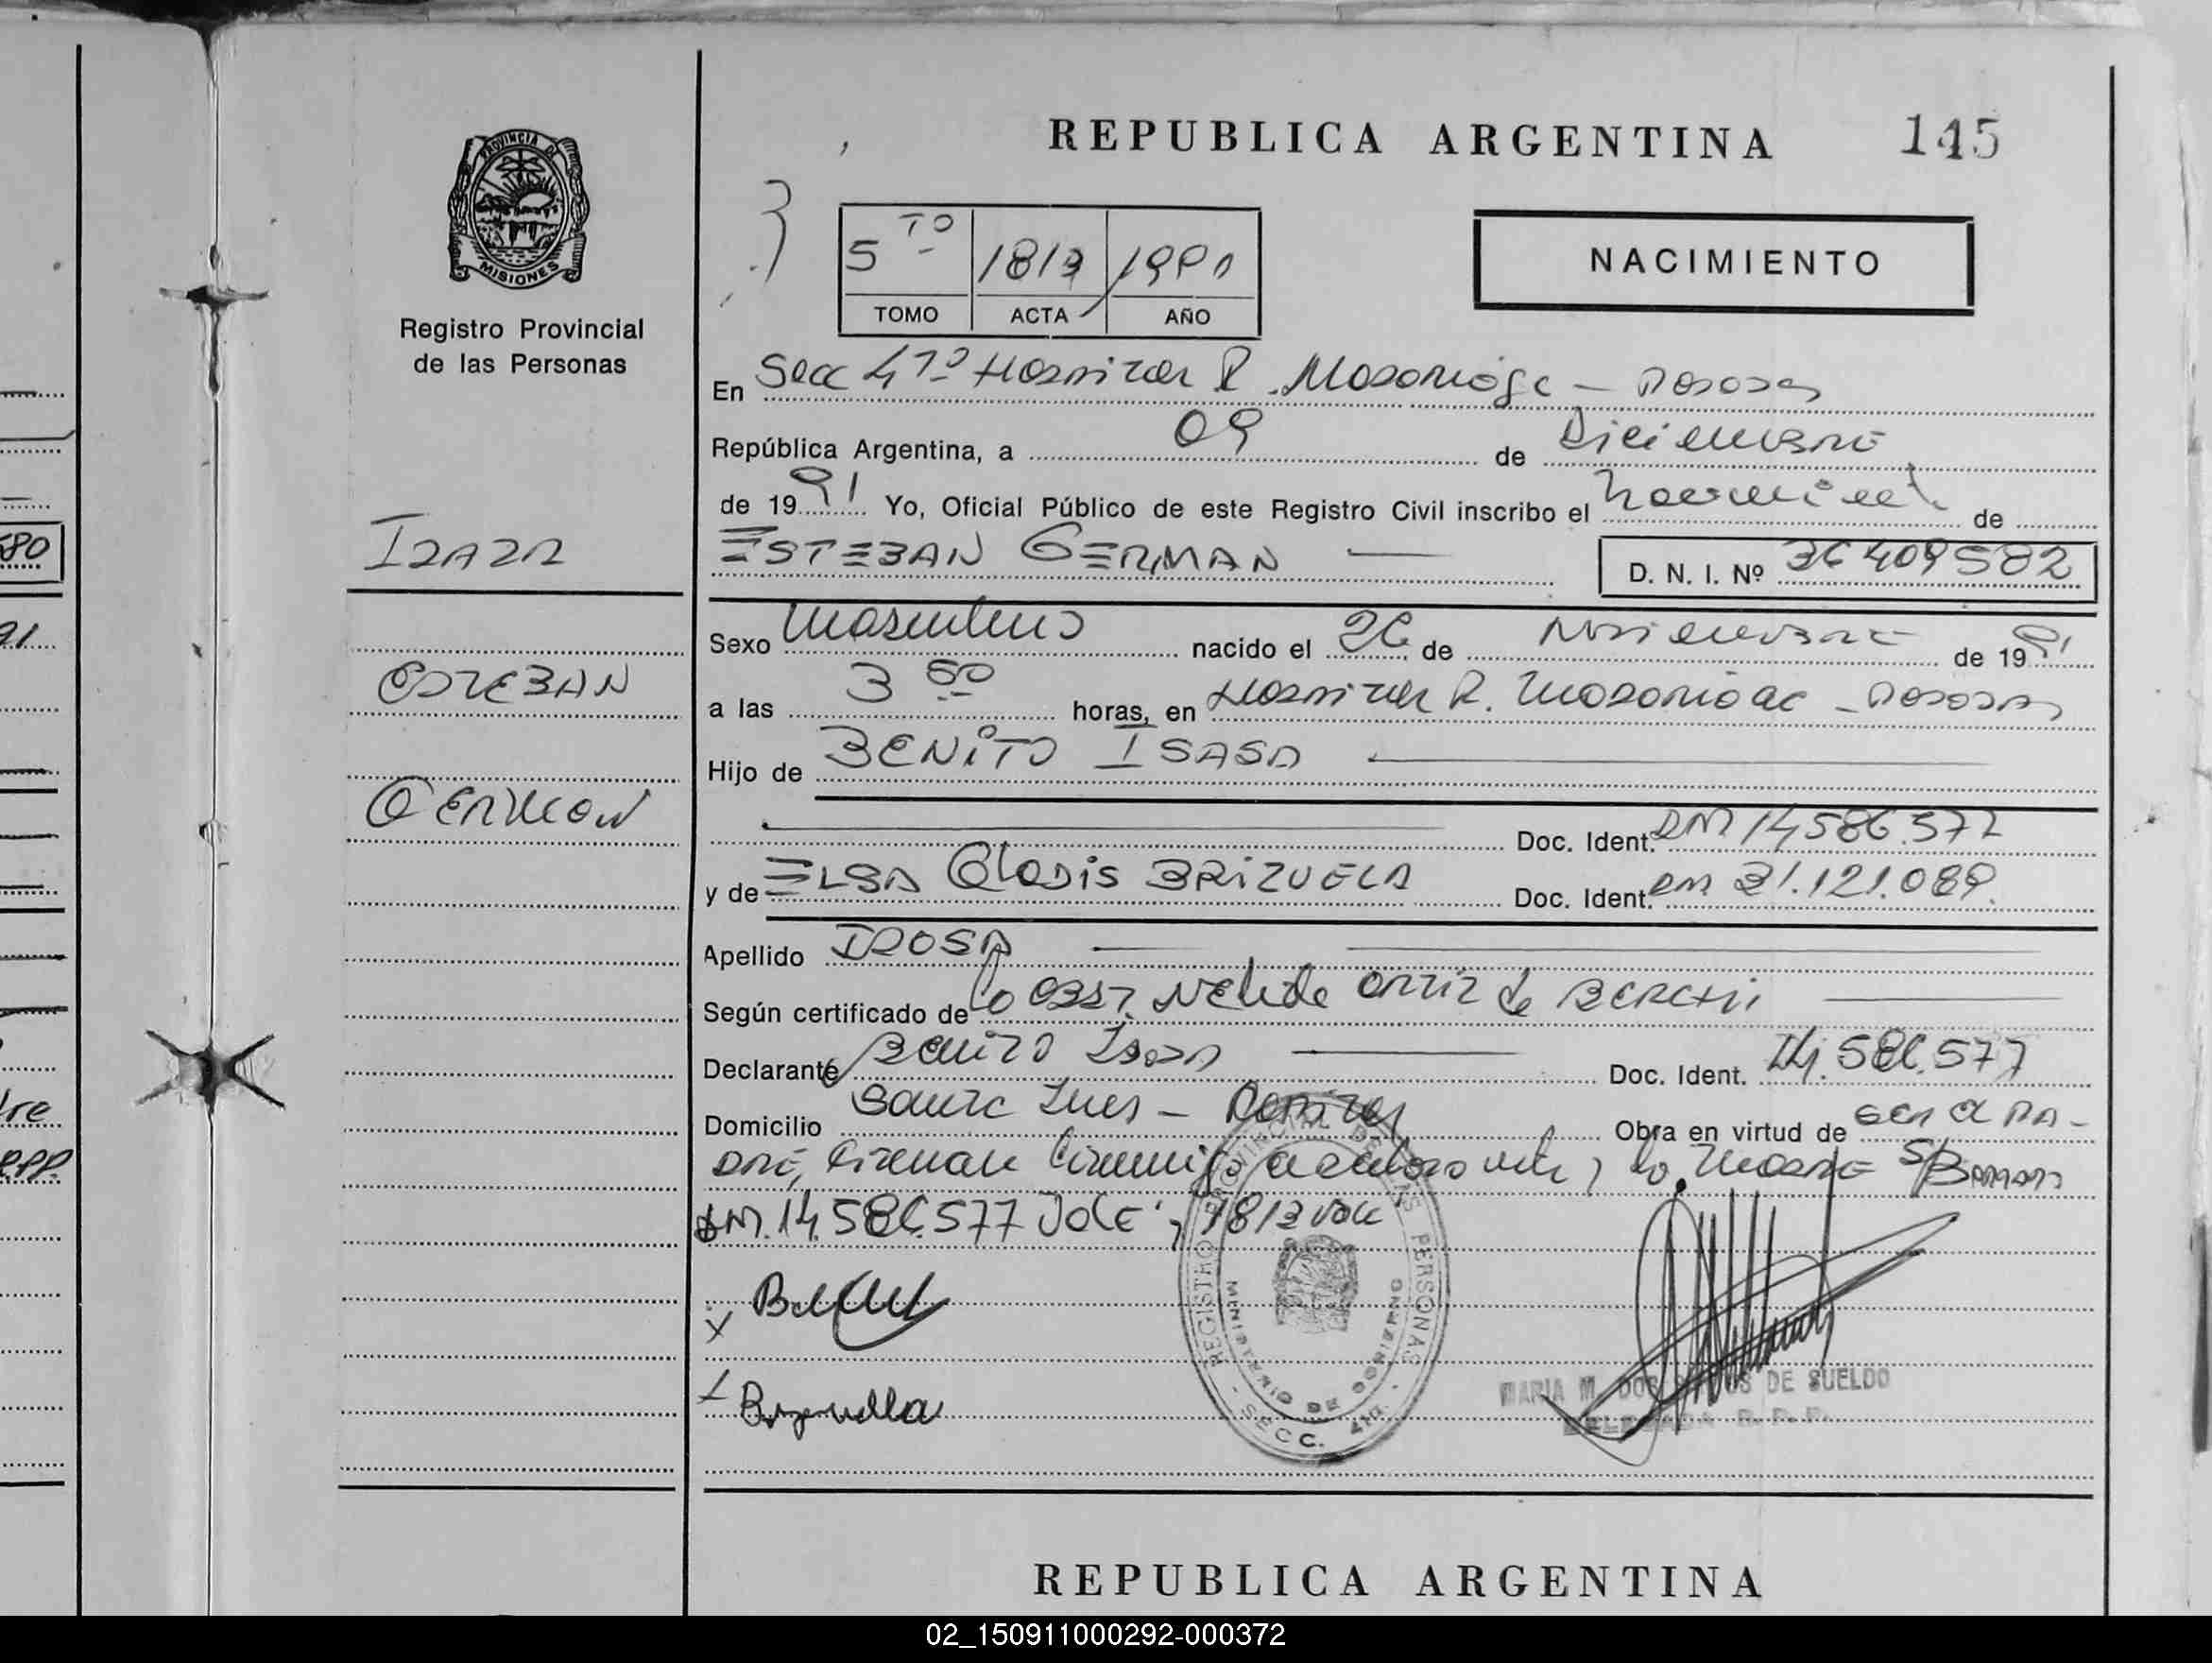 REPUBLICA ARGENTINA 145
PROVINCIA DE
MISIONES
Registro Provincial
de las Personas
5 TO 1813 1991
TOMO ACTA AÑO
NACIMIENTO
En Secc 4ta Hospital R. Madariaga - Posadas
República Argentina, a 09 de Diciembre
de 1991 Yo, Oficial Público de este Registro Civil inscribo el de
ESTEBAN GERMAN
D. N. I. Nº 36409582
ISASA
ESTEBAN
GERMAN
Sexo Masculino nacido el 26 de Noviembre de 1991
a las 3 50 horas, en Hospital R. Madariaga - Posadas
Hijo de BENITO ISASA
Doc. Ident. DNI 14.586.577
y de ELSA GLADIS BRIZUELA Doc. Ident. DNI 21.121.089.
Apellido ISASA
Según certificado de la Obst. Nelida Ortiz de
Declarante Benito Isasa Doc. Ident. 14.586.577
Domicilio Santa Ines - Obra en virtud de ser el pa-
dre, la Madre
DNI. 14.586.577 VALE, 1813 vale
REGISTRO PROVINCIAL DE LAS PERSONAS
MINISTERIO DE GOBIERNO
SECC. 4ta.
MARIA M. DOS SANTOS DE SUELDO
DELEGADA R. P. P.
REPUBLICA ARGENTINA
02_150911000292-000372